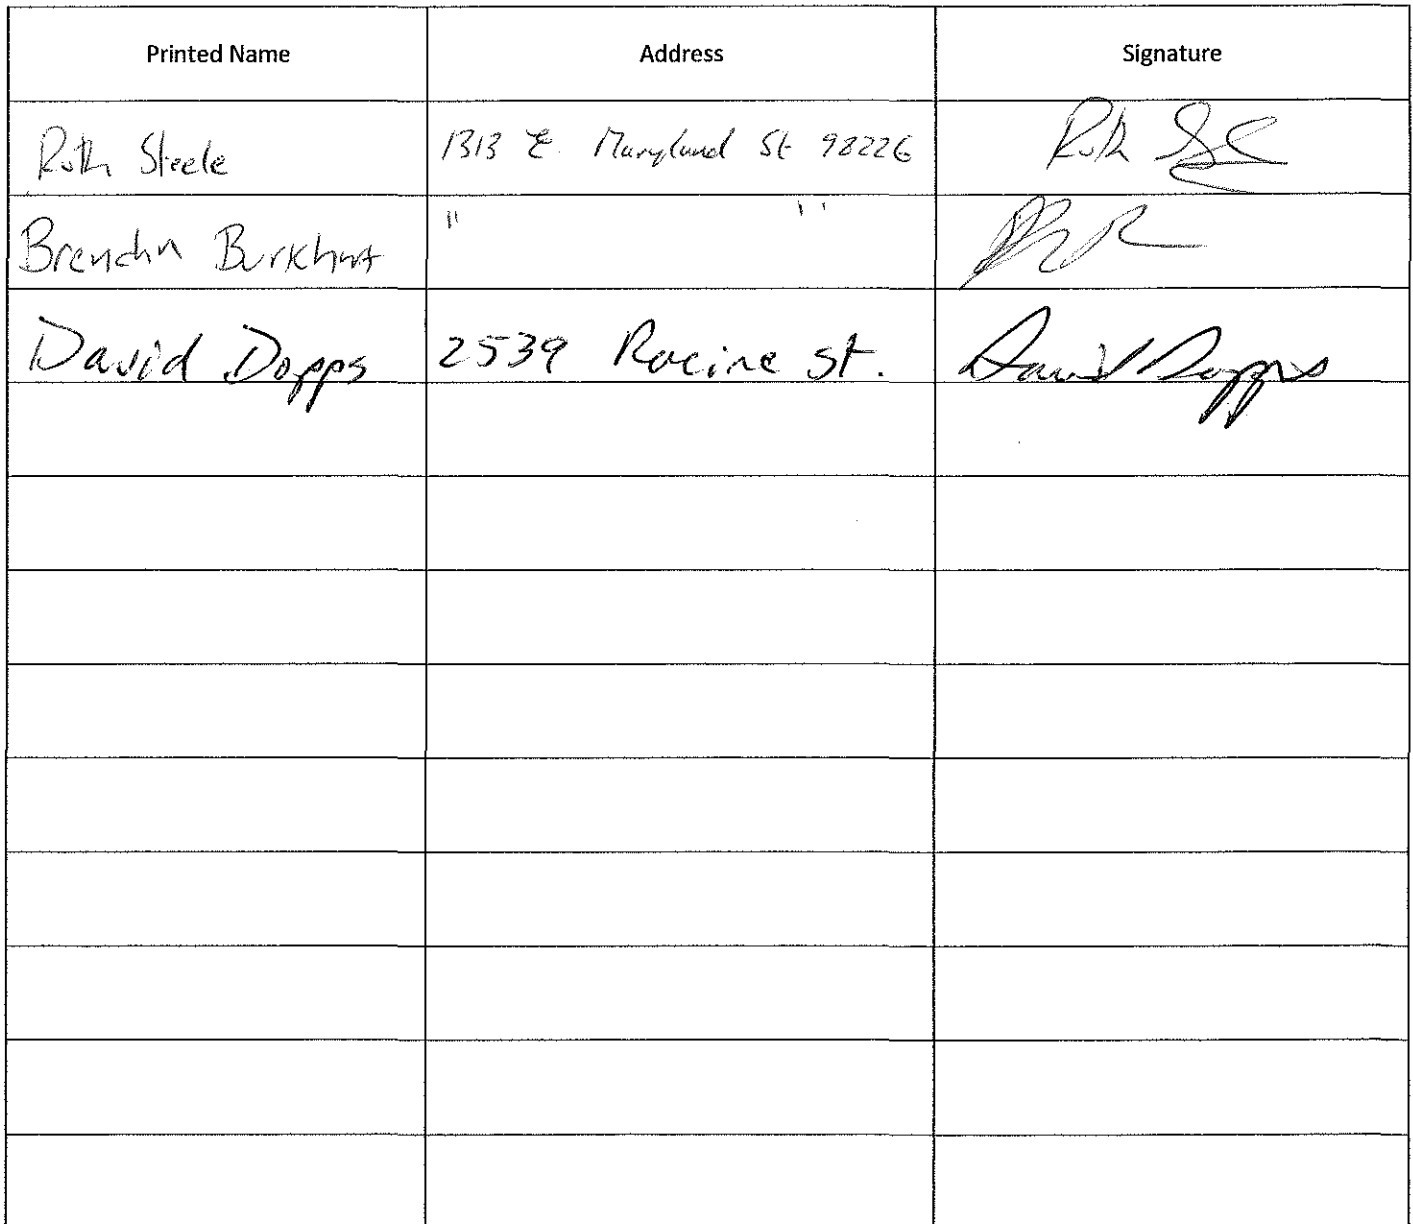 Printed Name Address Signature
Ruth Steele 1313 E. Maryland St 98226 Ruth
" "
David Dopps 2539 Racine St. David Dopps